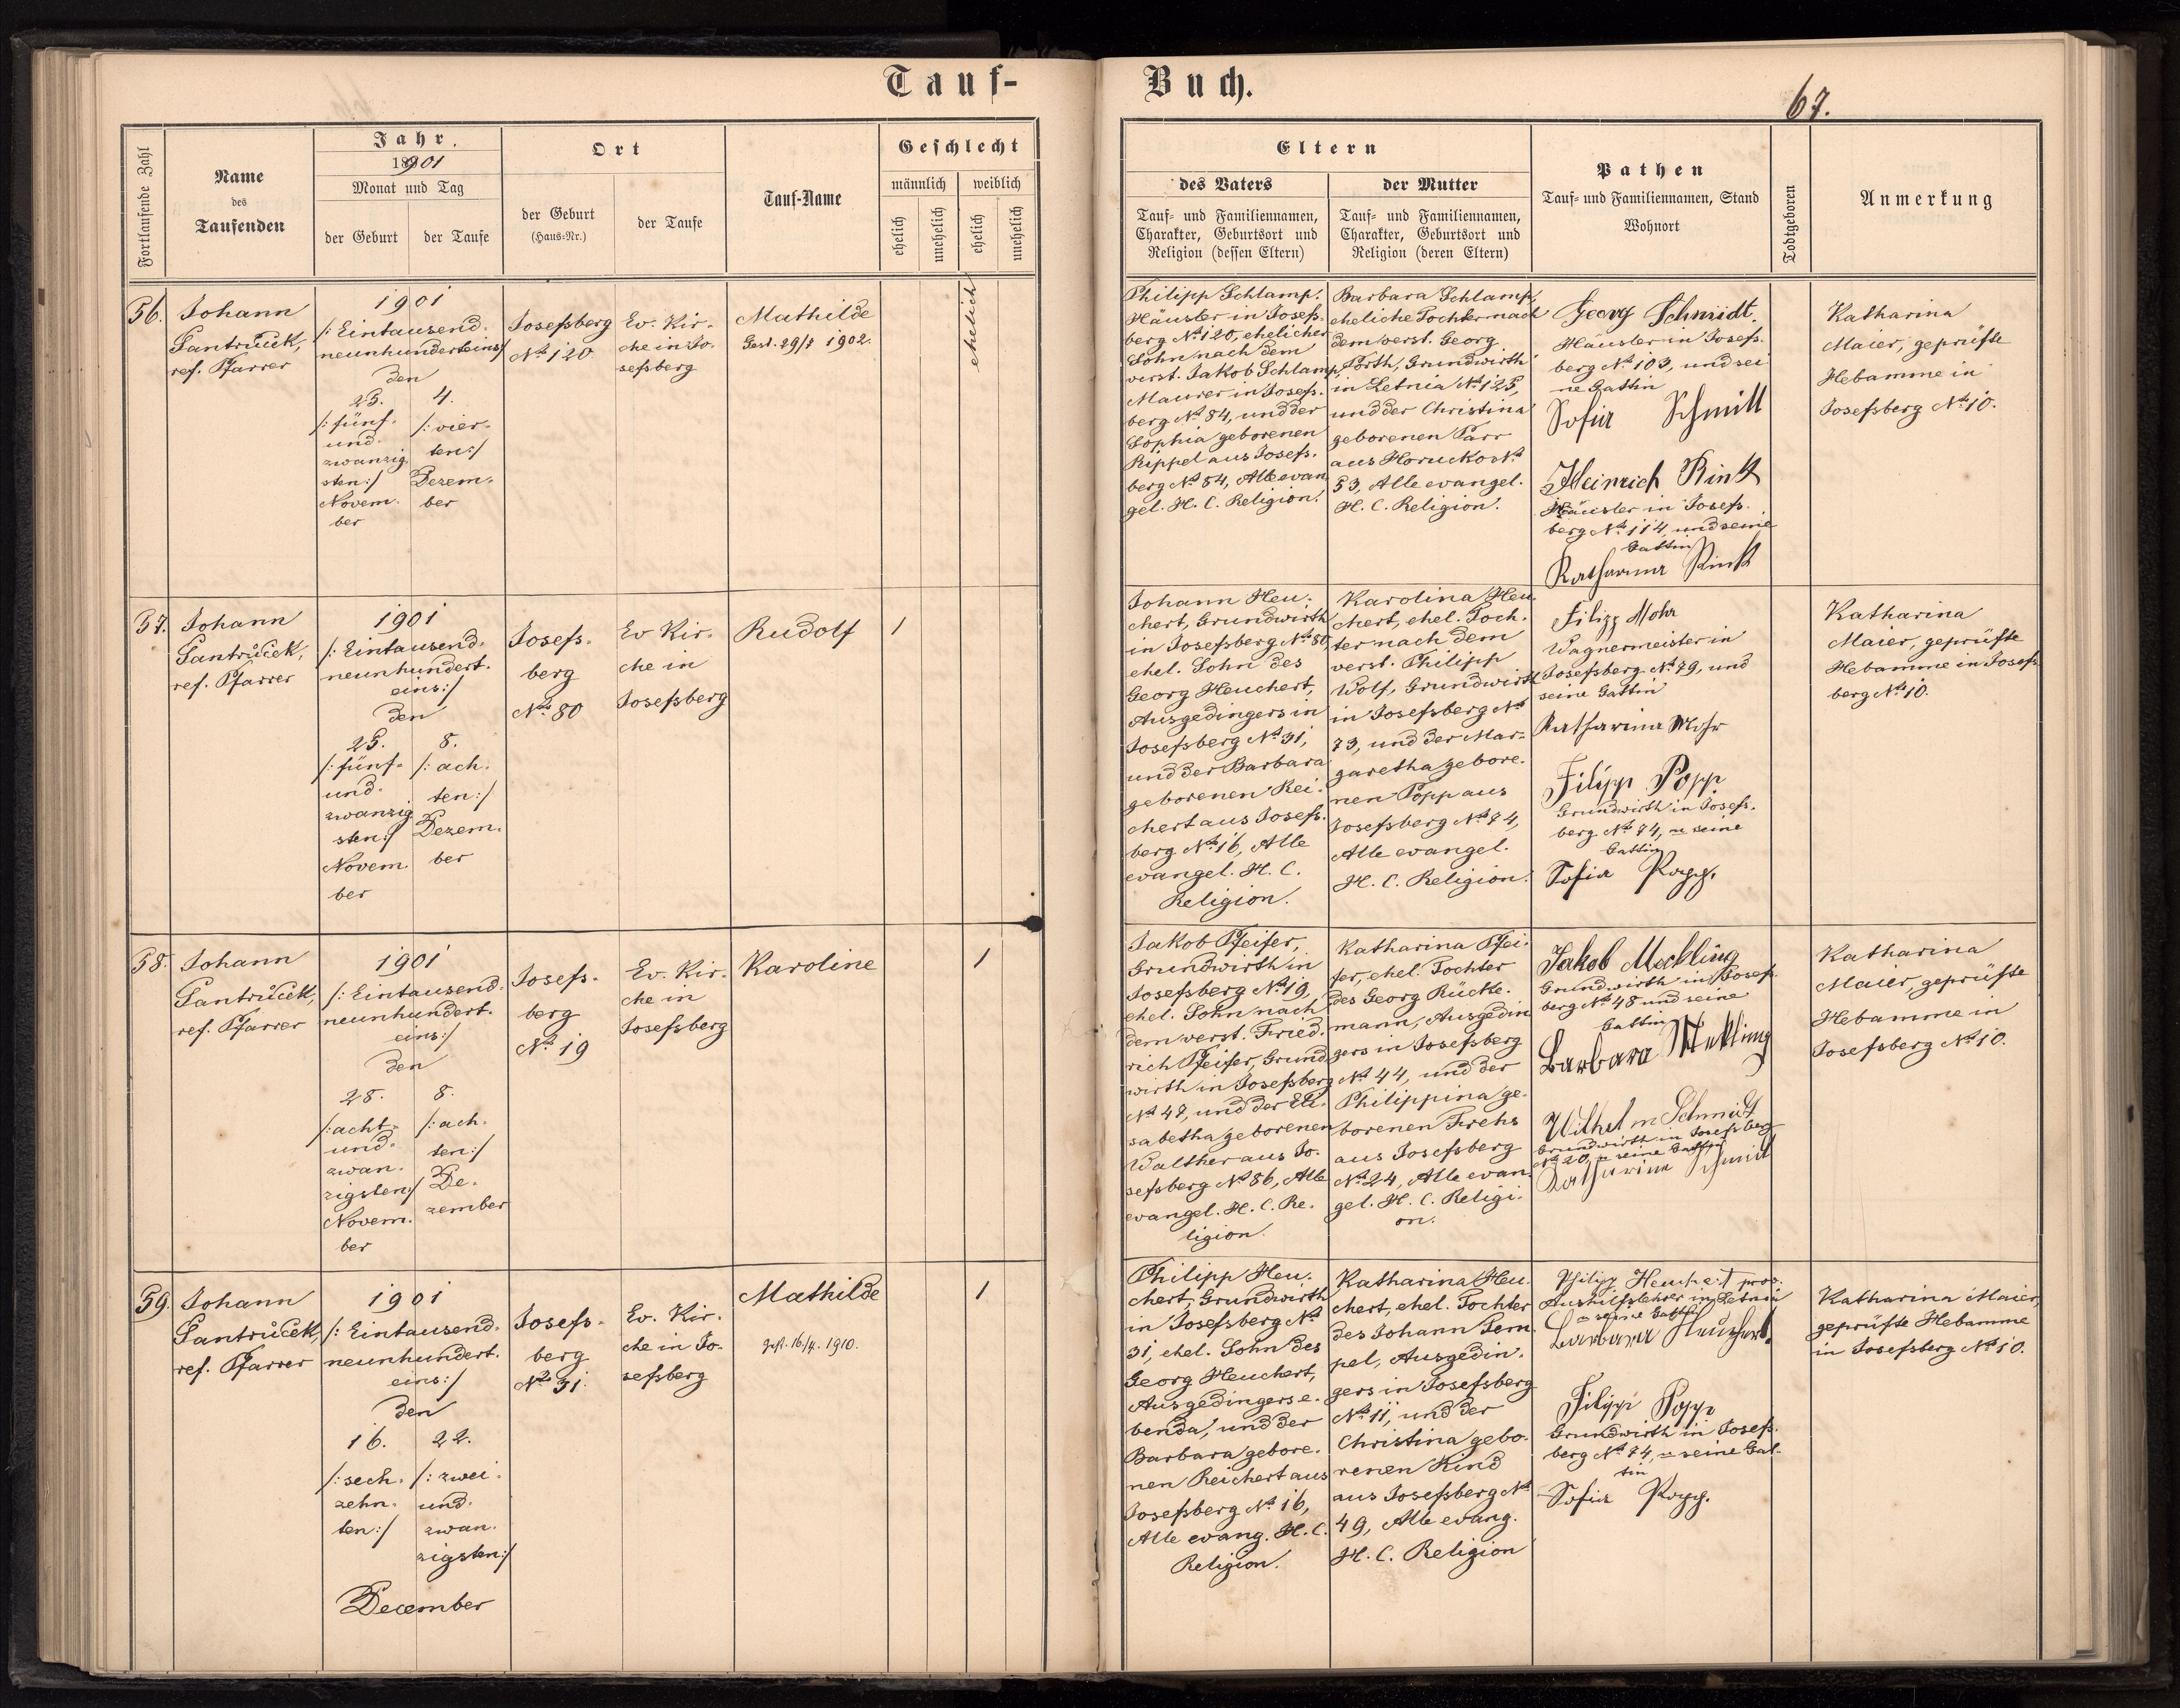 Tauf-
Buch.
67.
Fortlaufende Zahl
Name
des
Taufenden
Jahr.
1901
Monat und Tag
der Geburt
der Taufe
Ort
der Geburt
(Haus-Nr.)
der Taufe
Tauf-Name
Geschlecht
männlich
weiblich
ehelich
unehelich
ehelich
unehelich
Eltern
des Vaters
Tauf- und Familiennamen,
Charakter, Geburtsort und
Religion (dessen Eltern)
der Mutter
Tauf- und Familiennamen,
Charakter, Geburtsort und
Religion (deren Eltern)
Pathen
Tauf- und Familiennamen, Stand
Wohnort
Todtgeboren
Anmerkung
56.
Johann
Jantrůček,
ref. Pfarrer
1901
/: Eintausend-
neunhunderteins:/
den
25.
/: fünf-
und-
zwanzig
sten:/
Novem-
ber
4.
/: vier-
ten:/
Dezem-
ber
Josefsberg
No 120
Ev. Kir-
che in Jo-
sefsberg
Mathilde
Gest. 29/8 1902.
ehelich
Philipp Schlamp,
Häusler in Josefs-
berg No 120, ehelicher
Sohn nach dem
verst. Jakob Schlamp,
Maurer in Josefs-
berg No 84, und der
Sophia geborenen
Rippel aus Josefs-
berg No 84, Alle evan-
gel. H. C. Religion.
Barbara Schlamp,
eheliche Tochter nach
dem verst. Georg
Porth, Grundwirth
in Letnia No 125,
und der Christina
geborenen Parr
aus Horucko No
53, Alle evangel.
H. C. Religion.
Georg Schmidt.
Häusler in Josefs-
berg No 103, und sei
ne Gattin
Sofia Schmitt
Heinrich Rink
Häusler in Josefs-
berg No 114, und seine
Gattin
Katharina Rink
Katharina
Maier, geprüfte
Hebamme in
Josefsberg No 10.
57.
Johann
Jantrůček,
ref. Pfarrer
1901
/: Eintausend-
neunhundert-
eins:/
den
25.
/: fünf-
und-
zwanzig
sten:/
Novem-
ber
8.
/: ach-
ten:/
Dezem-
ber
Josefs-
berg
No 80
Ev Kir-
che in
Josefsberg
Rudolf
1
Johann Heu-
chert, Grundwirth
in Josefsberg No 80,
ehel. Sohn des
Georg Heuchert,
Ausgedingers in
Josefsberg No 31,
und der Barbara
geborenen Rei-
chert aus Josefs-
berg No 16, Alle
evangel. H. C.
Religion.
Karolina Heu-
chert, ehel. Toch-
ter nach dem
verst. Philipp
Wolf, Grundwirth
in Josefsberg No
73, und der Mar-
garetha gebore-
nen Popp aus
Josefsberg No 74,
Alle evangel.
H. C. Religion.
Filipp Mohr
Wagnermeister in
Josefsberg No 79, und
seine Gattin
Katharina Mohr
Filipp Popp
Grundwirth in Josefs-
berg No 74, u seine
Gattin
Sofia Popp.
Katharina
Maier, geprüfte
Hebamme in Josefs-
berg No 10.
58.
Johann
Jantrůček,
ref. Pfarrer
1901
/: Eintausend-
neunhundert-
eins:/
den
28.
/: acht-
und-
zwan-
zigsten:/
Novem-
ber
8.
/: ach-
ten:/
De-
zember
Josefs-
berg
No 19
Ev. Kir-
che in
Josefsberg
Karoline
1
Jakob Pfeifer,
Grundwirth in
Josefsberg No 19,
ehel. Sohn nach
dem verst. Fried-
rich Pfeifer, Grund-
wirth in Josefsberg
No 47, und der Eli-
sabetha geborenen
Walther aus Jo-
sefsberg No 86, Alle
evangel. H. C. Re-
ligion.
Katharina Pfei-
fer, ehel. Tochter
des Georg Rücke-
mann, Ausgedin
gers in Josefsberg
No 44, und der
Philippina ge-
borenen Frehs
aus Josefsberg
No 24, Alle evan-
gel. H. C. Religi-
on.
Jakob Meckling
Grundwirth in Josefs-
berg No 48 und seine
Gattin
Barbara Mekling
Wilhelm Schmidt
Grundwirth in Josefsberg
No 20, u seine Gattin
Katharina Schmidt
Katharina
Maier, geprüfte
Hebamme in
Josefsberg No 10.
59.
Johann
Jantrůček,
ref. Pfarrer
1901
/: Eintausend-
neunhundert-
eins:/
den
16.
/: sech-
zehn-
ten:/
22.
/: zwei-
und-
zwan-
zigsten:/
December
Josefs-
berg
No 31.
Ev. Kir-
che in Jo-
sefsberg
Mathilde
gest. 16/4. 1910.
1
Philipp Heu-
chert, Grundwirth
in Josefsberg No
31, ehel. Sohn des
Georg Heuchert,
Ausgedingers e-
benda, und der
Barbara gebore-
nen Reichert aus
Josefsberg No 16,
Alle evang. H. C.
Religion.
Katharina Heu-
chert, ehel. Tochter
des Johann Tem-
pel, Ausgedin-
gers in Josefsberg
No 11, und der
Christina gebo-
renen Kind
aus Josefsberg No
49, Alle evang.
H. C. Religion
Philipp Heuchert prov.
Aushilfslehrer in Letnia
u seine Gattin
Barbara Heuchert.
Filipp Popp
Grundwirth in Josefs-
berg No 74, u seine Gat-
tin
Sofia Popp.
Katharina Maier,
geprüfte Hebamme
in Josefsberg No 10.